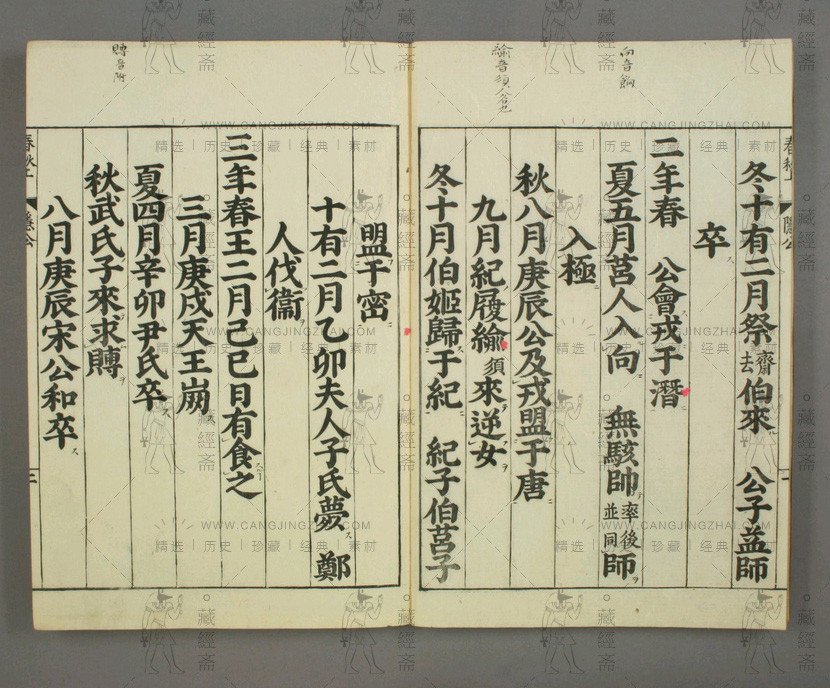 冬十有二月祭齋去伯來　公子益師
卒
二年春　公會戎于潛
夏五月莒人入向　無駭帥率後並同師
入極
秋八月庚辰公及戎盟于唐
九月紀履緰須來逆女
冬十月伯姬歸于紀　紀子伯莒子
盟于密
十有二月乙卯夫人子氏薨　鄭
人伐衞
三年春王二月己巳日有食之
三月庚戌天王崩
夏四月辛卯尹氏卒
秋武氏子來求賻
八月庚辰宋公和卒
向音餉
賻音附
春秋上
隱公
二
藏經斋
WWW.CANGJINGZHAI.COM
精选｜历史｜珍藏｜经典｜素材